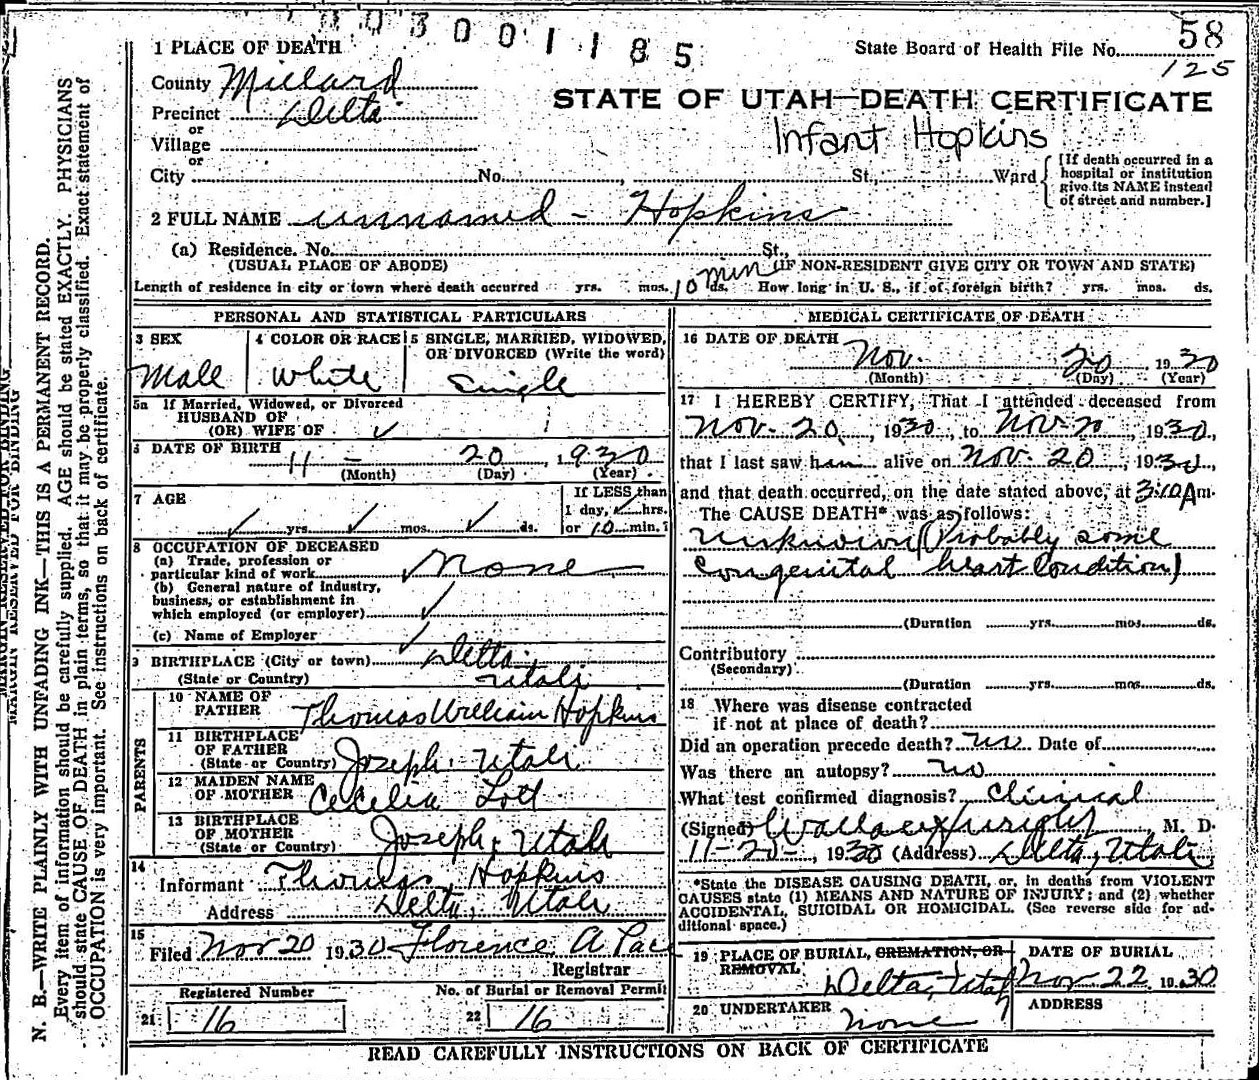 3001185
58
1 PLACE OF DEATH
State Board of Health File No.
125
County Millard
STATE OF UTAH—DEATH CERTIFICATE
Precinct Delta
or
Infant Hopkins
Village
or
City No. St., Ward
[If death occurred in a
hospital or institution
give its NAME instead
of street and number.]
2 FULL NAME unnamed - Hopkins
(a) Residence. No. St.,
(USUAL PLACE OF ABODE) (IF NON-RESIDENT GIVE CITY OR TOWN AND STATE)
Length of residence in city or town where death occurred yrs. mos. 10 min ds. How long in U. S., if of foreign birth? yrs. mos. ds.
PERSONAL AND STATISTICAL PARTICULARS
3 SEX
Male
4 COLOR OR RACE
White
5 SINGLE, MARRIED, WIDOWED,
OR DIVORCED (Write the word)
Single
5a If Married, Widowed, or Divorced
HUSBAND OF
(OR) WIFE OF ✓
DATE OF BIRTH 11 - 20 1930
(Month) (Day) (Year)
7 AGE
✓ yrs. ✓ mos. ✓ ds.
If LESS than
1 day, ✓ hrs.
or 10 min.?
8 OCCUPATION OF DECEASED
(a) Trade, profession or
particular kind of work None
(b) General nature of industry,
business, or establishment in
which employed (or employer) ✓
(c) Name of Employer ✓
BIRTHPLACE (City or town) Delta
(State or Country) Utah
PARENTS
10 NAME OF
FATHER Thomas William Hopkins
11 BIRTHPLACE
OF FATHER
(State or Country) Joseph. Utah
12 MAIDEN NAME
OF MOTHER Cecelia Lott
13 BIRTHPLACE
OF MOTHER
(State or Country) Joseph, Utah
14
Informant Thomas Hopkins
Address Delta, Utah
15
Filed Nov 20 1930 Florence A Pace
Registrar
Registered Number
21 16
No. of Burial or Removal Permit
22 16
MEDICAL CERTIFICATE OF DEATH
16 DATE OF DEATH
Nov. 20 1930
(Month) (Day) (Year)
17 I HEREBY CERTIFY, That I attended deceased from
Nov. 20, 1930, to Nov 20, 1930,
that I last saw him alive on Nov. 20, 1930,
and that death occurred, on the date stated above, at 3:10 A m.
The CAUSE DEATH* was as follows:
Unknown (Probably some
congenital heart condition)
(Duration yrs. mos. ds.
Contributory
(Secondary)
(Duration yrs. mos. ds.
18 Where was disease contracted
if not at place of death?
Did an operation precede death? no Date of
Was there an autopsy? no
What test confirmed diagnosis? Clinical
(Signed) M. D.
11-20-, 1930 (Address) Delta, Utah
*State the DISEASE CAUSING DEATH, or, in deaths from VIOLENT
CAUSES state (1) MEANS AND NATURE OF INJURY; and (2) whether
ACCIDENTAL, SUICIDAL OR HOMICIDAL. (See reverse side for ad-
ditional space.)
19 PLACE OF BURIAL, CREMATION, OR
REMOVAL
Delta, Utah
DATE OF BURIAL
Nov 22 1930
20 UNDERTAKER
none
ADDRESS
READ CAREFULLY INSTRUCTIONS ON BACK OF CERTIFICATE
MARGIN RESERVED FOR BINDING
MARGIN RESERVED FOR BINDING
N. B.—WRITE PLAINLY WITH UNFADING INK—THIS IS A PERMANENT RECORD.
Every item of information should be carefully supplied. AGE should be stated EXACTLY. PHYSICIANS
should state CAUSE OF DEATH in plain terms, so that it may be properly classified. Exact statement of
OCCUPATION is very important. See instructions on back of certificate.